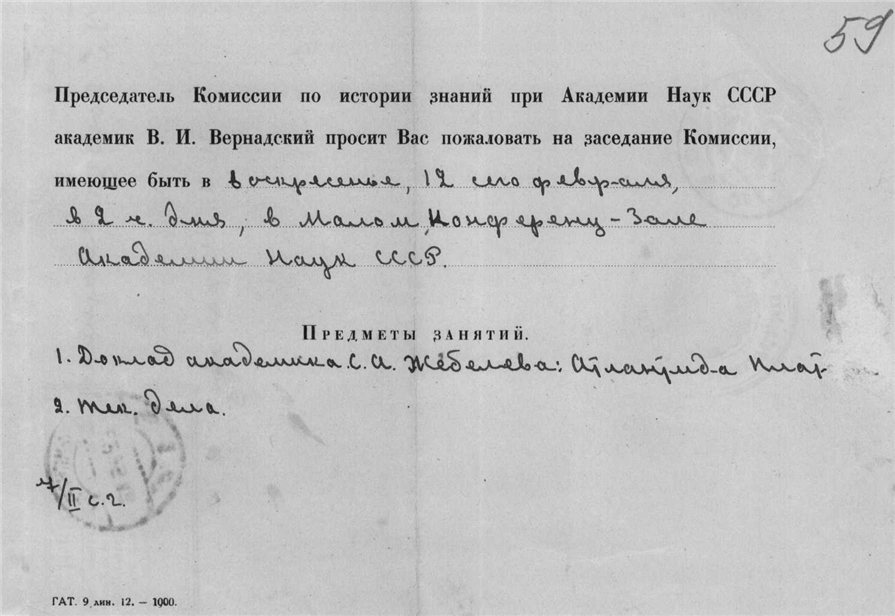 59
Председатель Комиссии по истории знаний при Академии Наук СССР
академик В. И. Вернадский просит Вас пожаловать на заседание Комиссии,
имеющее быть в воскресенье, 12 сего февраля,
в 2 ч. дня, в Малом Конференц-Зале
Академии Наук СССР.
Предметы занятий.
1. Доклад академика С. А. Жебелева: Атлантида Плат-
2. Тек. дела.
7/II с.г.
ГАТ. 9 лин. 12. — 1000.